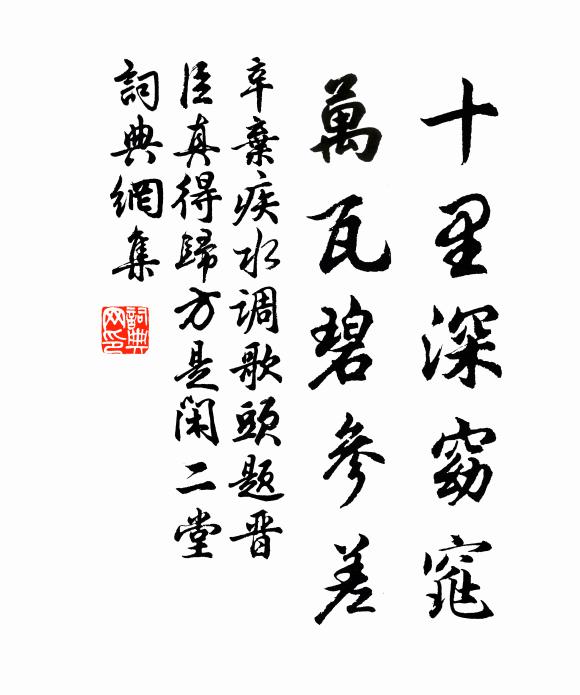 十里深窈窕
萬瓦碧參差
辛棄疾水调歌頭題晋
臣真得歸方是閑二堂
詞典網集
詞典网印